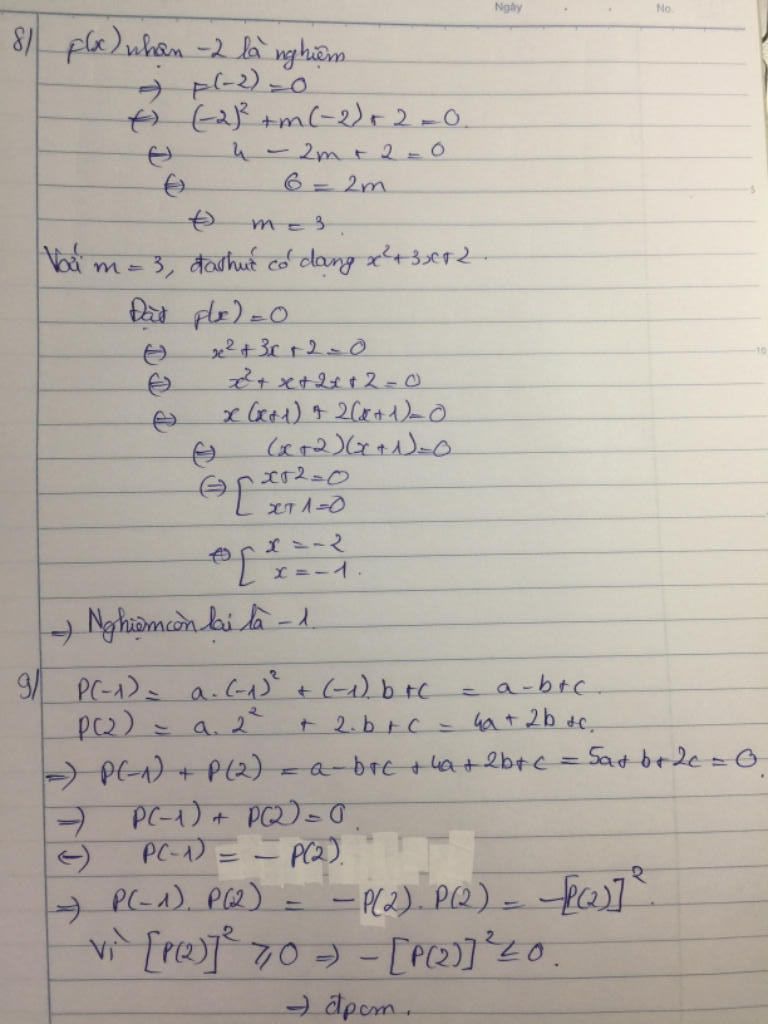 Ngày . . No.
8/ P(x) nhận -2 là nghiệm
=> P(-2) = 0
<=> (-2)² + m(-2) + 2 = 0.
<=> 4 - 2m + 2 = 0
<=> 6 = 2m
<=> m = 3.
Với m = 3, đa thức có dạng x² + 3x + 2.
Đặt P(x) = 0
<=> x² + 3x + 2 = 0
<=> x² + x + 2x + 2 = 0
<=> x(x+1) + 2(x+1) = 0
<=> (x+2)(x+1) = 0
<=> [ x+2 = 0
x+1 = 0
<=> [ x = -2
x = -1.
=> Nghiệm còn lại là -1.
9/ P(-1) = a.(-1)² + (-1).b + c = a - b + c.
P(2) = a.2² + 2.b + c = 4a + 2b + c.
=> P(-1) + P(2) = a - b + c + 4a + 2b + c = 5a + b + 2c = 0
=> P(-1) + P(2) = 0.
<=> P(-1) = - P(2).
=> P(-1). P(2) = - P(2). P(2) = -[P(2)]².
Vì [P(2)]² ⩾ 0 => - [P(2)]² ≤ 0.
=> đpcm.
5
10